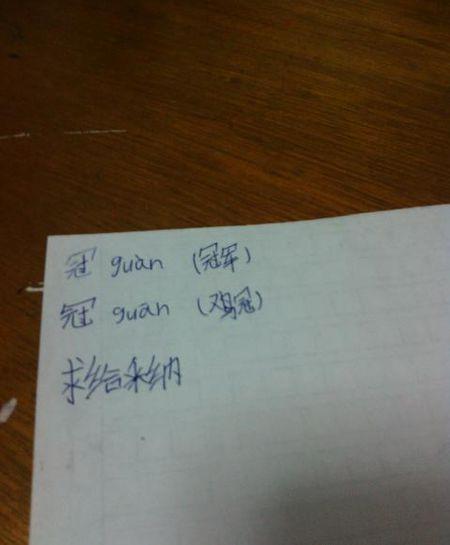 冠 guàn (冠军)
冠 guān (鸡冠)
求给采纳